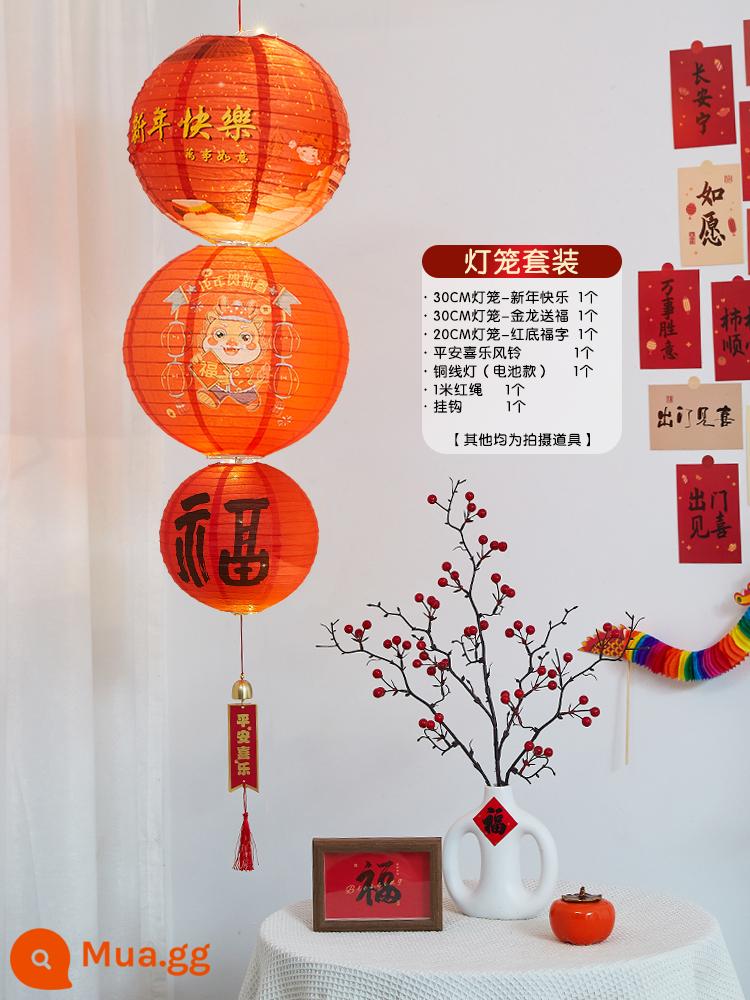 新年快樂
萬事如意
龙年贺新春
福
福
平安喜乐
灯笼套装
· 30CM灯笼-新年快乐 1个
· 30CM灯笼-金龙送福 1个
· 20CM灯笼-红底福字 1个
· 平安喜乐风铃 1个
· 铜线灯（电池款） 1个
· 1米红绳 1个
· 挂钩 1个
【 其他均为拍摄道具 】
长安宁
如愿
万事胜意
柿柿顺
出门见喜
出门见喜
福
福
Mua.gg